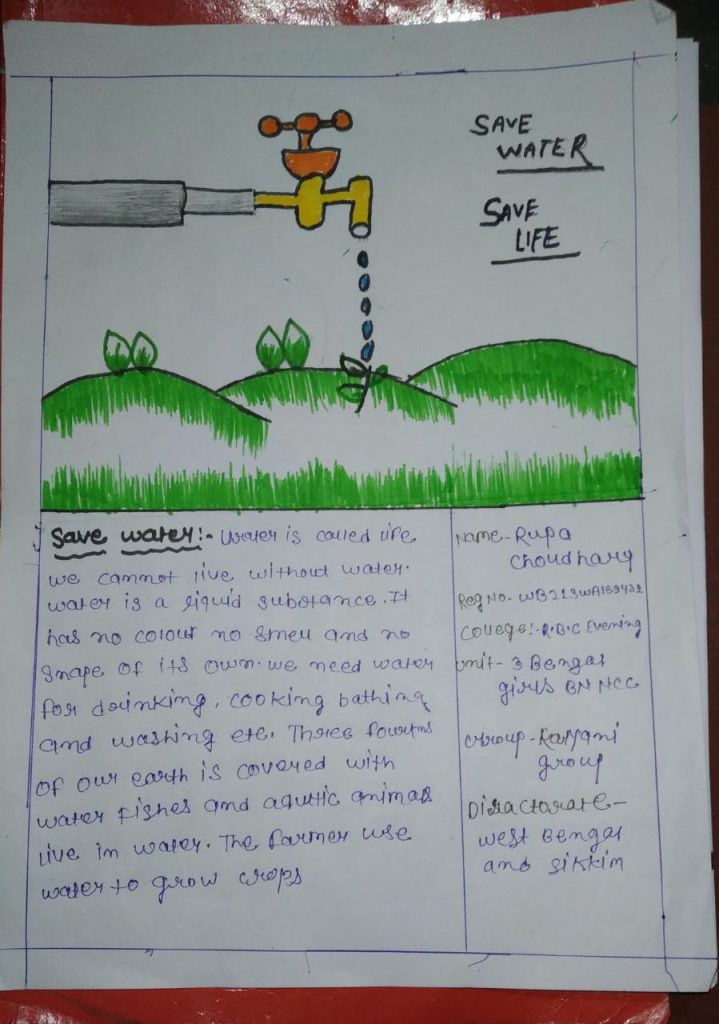 SAVE
WATER
SAVE
LIFE
Save water:- Water is called life
we cannot live without water.
water is a liquid substance. It
has no colour no smell and no
shape of its own. we need water
for drinking, cooking bathing
and washing etc. Three fourths
of our earth is covered with
water fishes and aquttic animals
live in water. The farmer use
water to grow crops
Name- Rupa
Choudhary
Reg No.
College:- R.B.C Evening
Unit- 3 Bengal
girls BN NCC
Group- Kalyani
group
Diractorate-
West Bengal
and Sikkim